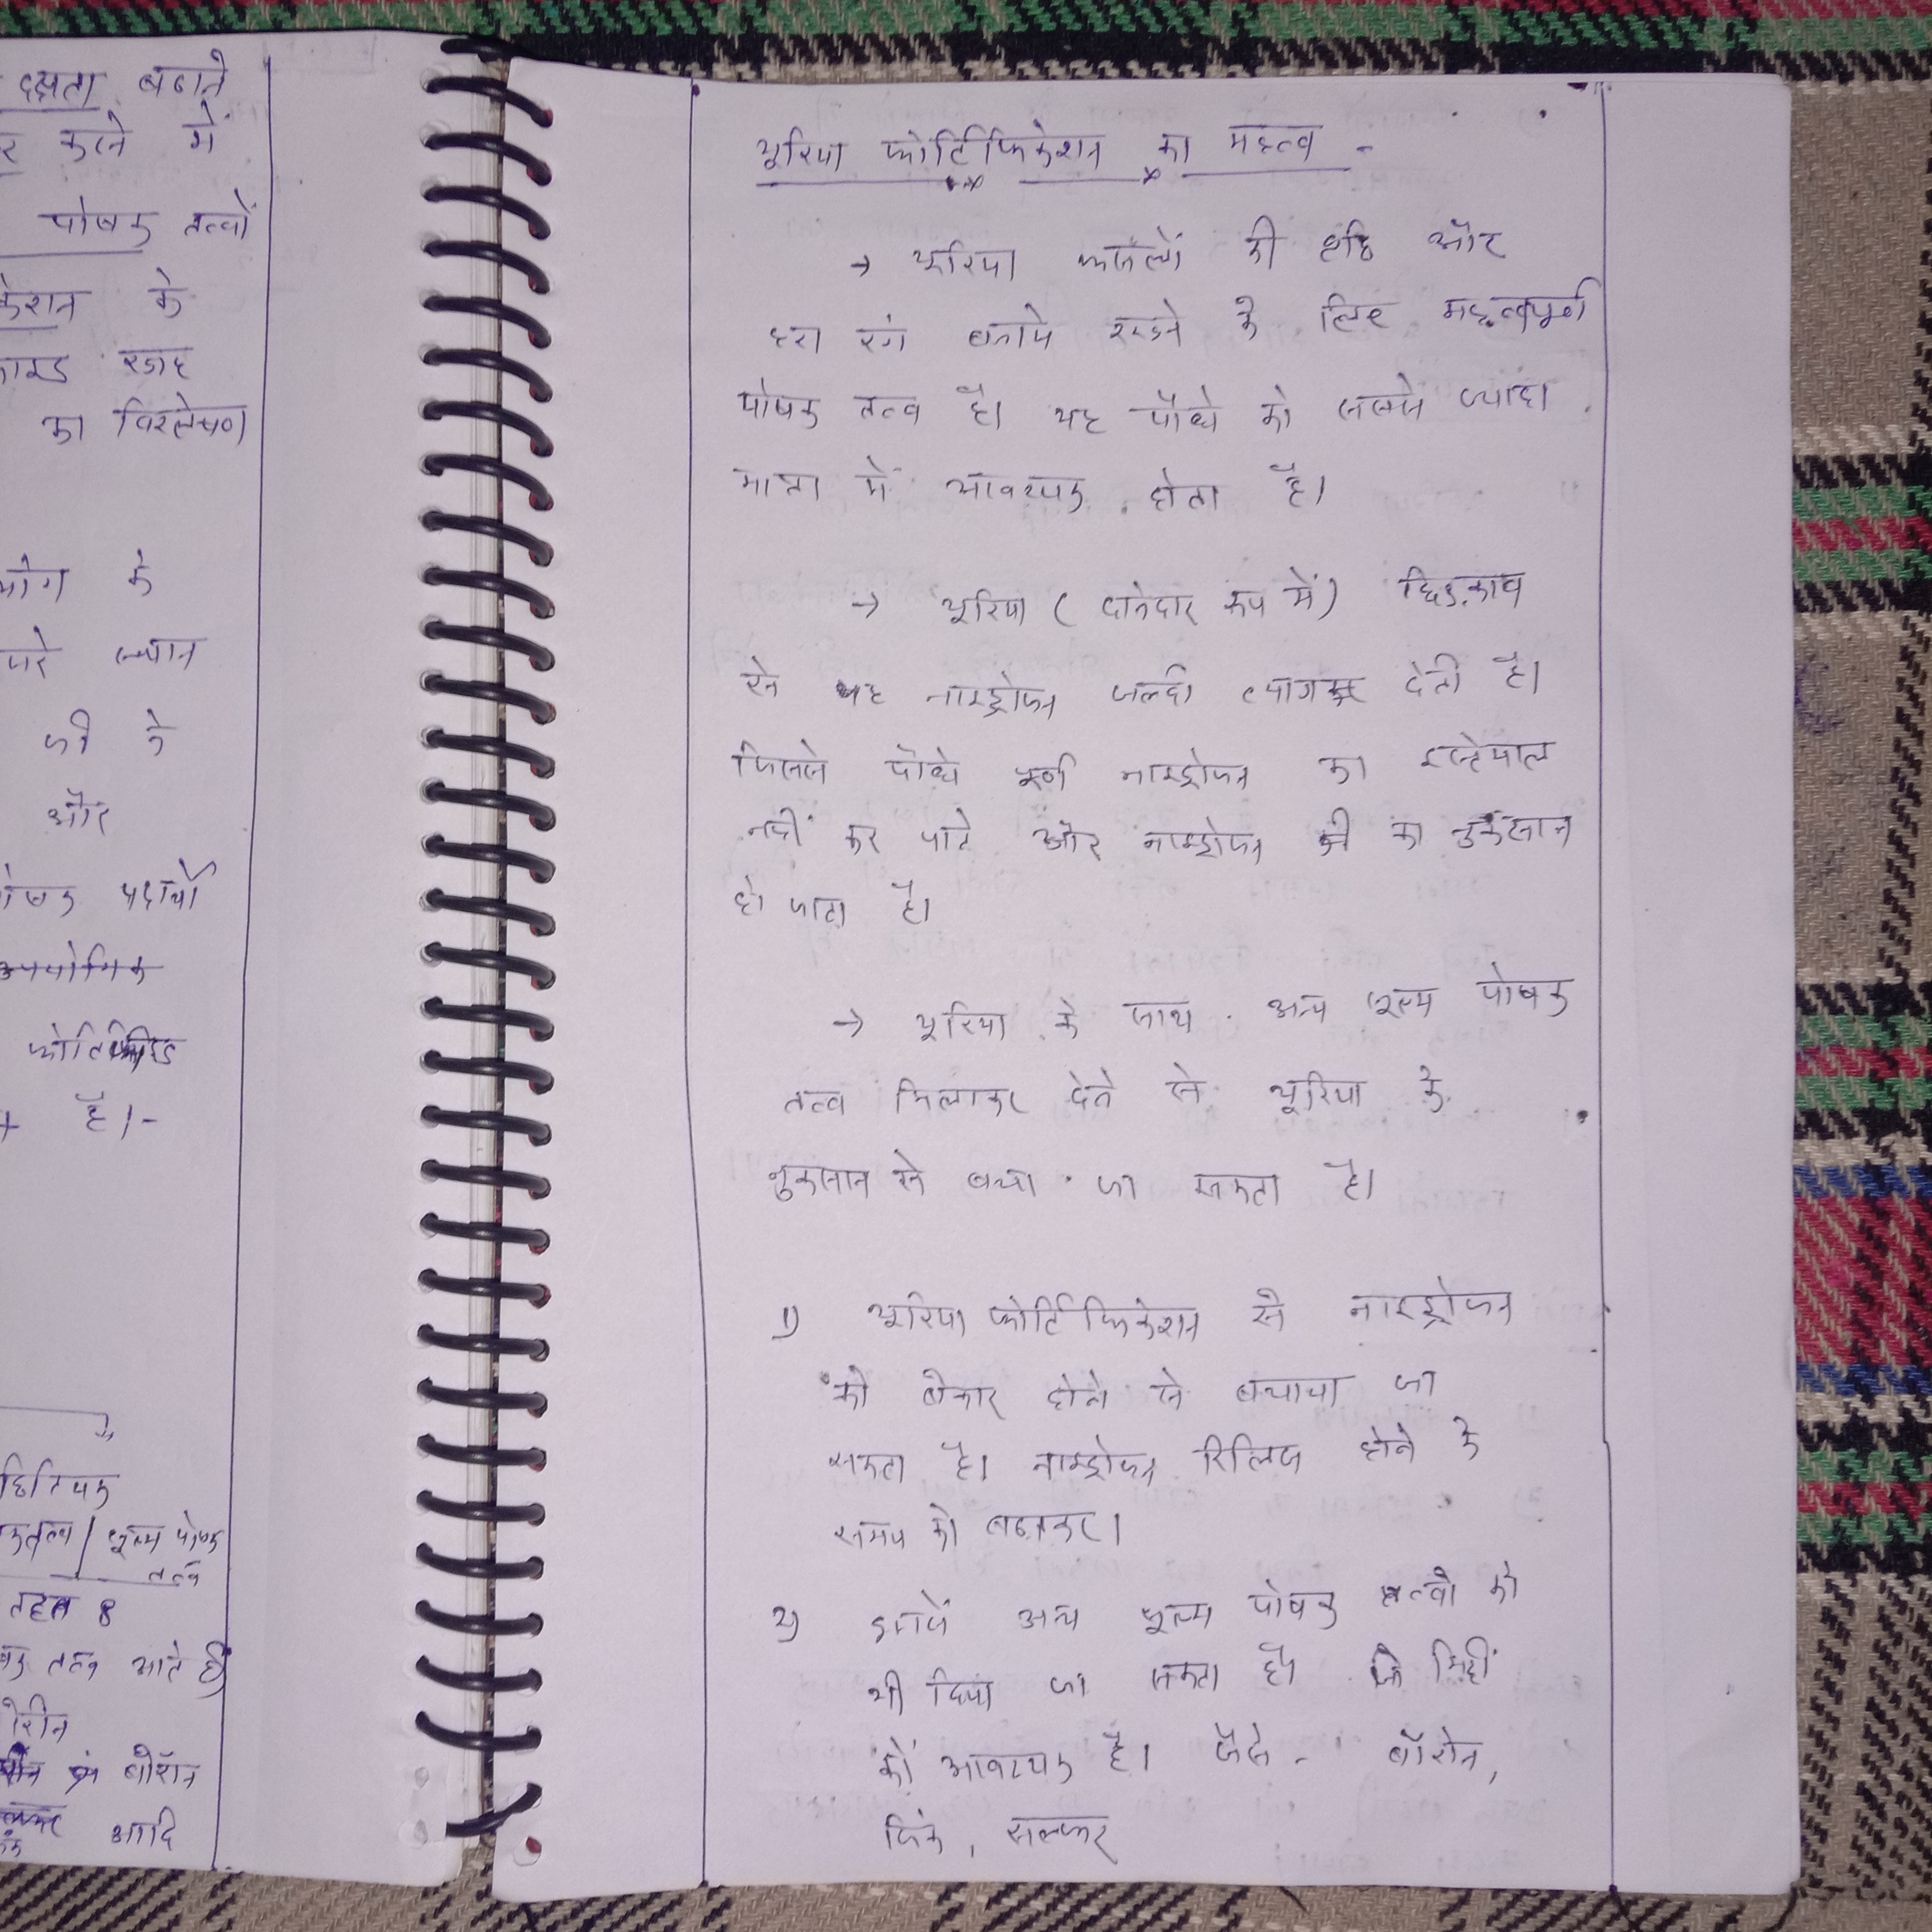 दक्षता बढाने
र करने में
पोषक तत्वों
केशन के
का विश्लेषण
के
और
पदार्थो
उपयोगिक
है।-
तहत 8
तत्व आते है
बोरॉन
आदि
यूरिया फोर्टिफिकेशन का महत्व -
→ यूरिया फसलों की वृद्धि और
हरा रंग बनाये रखने के लिए महत्वपूर्ण
पोषक तत्व है। यह पौधे को सबसे ज्यादा
मात्रा में आवश्यक होता है।
→ यूरिया ( दानेदार रूप में) छिड़काव
से यह नाइट्रोजन जल्दी त्याग देती है।
जिससे पौधे पूर्ण नाइट्रोजन का इस्तेमाल
नहीं कर पाते और नाइट्रोजन का नुकसान
हो जाता है।
→ यूरिया के साथ अन्य सूक्ष्म पोषक
तत्व मिलाकर देने से यूरिया के
नुकसान से बचा जा सकता है।
1) यूरिया फोर्टिफिकेशन से नाइट्रोजन
को बेकार होने से बचाया जा
सकता है। नाइट्रोजन रिलिज होने के
समय को बढाकर।
2) इसमें अन्य सूक्ष्म पोषक तत्वो को
भी दिया जा सकता है। मिट्टी
को आवश्यक है। जैसे - बॉरोन,
जिंक, सल्फर